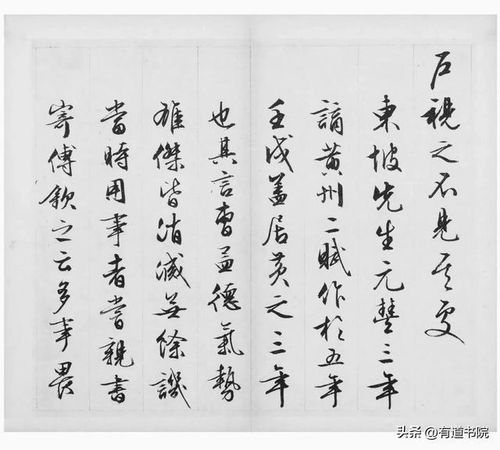 户視之不見其處
東坡先生元豐三年
謫黄州二賦作於五年
壬戌蓋居黄之三年
也其言曹孟德氣勢
雄傑皆消滅無餘譏
當時用事者嘗親書
寄傅欽之云多事畏
头条 @有道书院